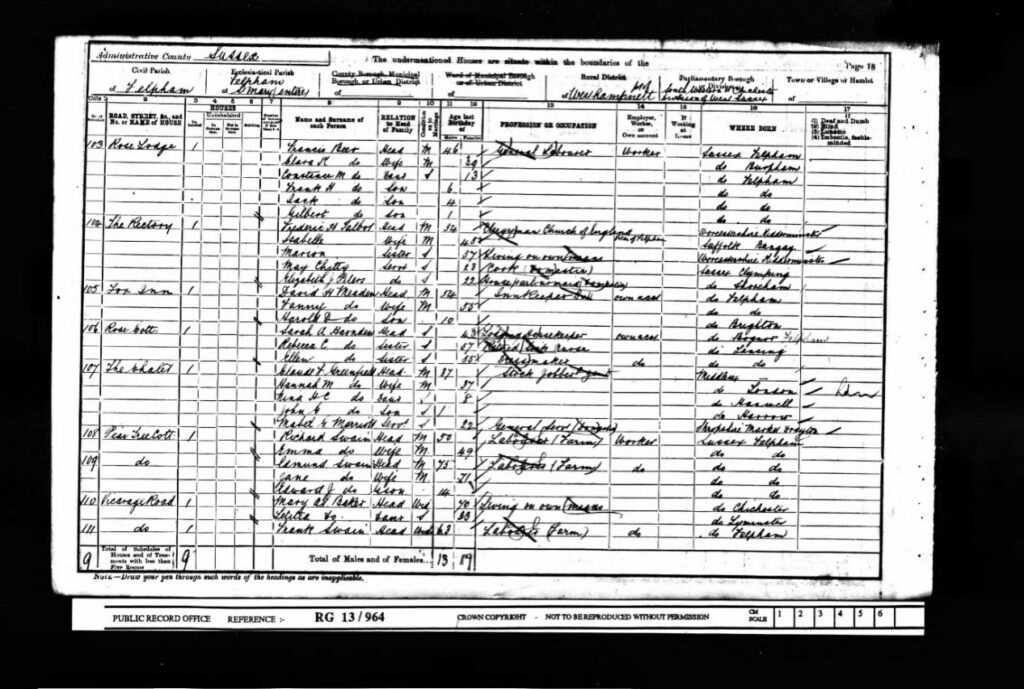 Administrative County Sussex The undermentioned Houses are situate within the boundaries of the Page 18
Civil Parish of Felpham Ecclesiastical Parish of Felpham St Mary (entire) County Borough, Municipal Borough, or Urban District of Ward of Municipal Borough or of Urban District of Rural District of West Hampnett Parliamentary Borough or Division of Town or Village or Hamlet of
Cols. 1 2 3 4 5 6 7 8 9 10 11 12 13 14 15 16 17
ROAD, STREET, &c., and No. or NAME of HOUSE HOUSES Uninhabited Name and Surname of each Person RELATION to Head of Family Condition as to Marriage Age last Birthday of Males Females PROFESSION OR OCCUPATION Employer, Worker, or Own account If Working at Home WHERE BORN (1) Deaf and Dumb (2) Blind (3) Lunatic (4) Imbecile, feeble-minded
103 Rose Lodge 1 Francis Beer Head M 46 General Labourer Worker Sussex Felpham
Clara K do Wife M 29 do Burpham
Constance M do Daur S 13 do Felpham
Frank H do Son 6 do do
Jack do Son 4 do do
Gilbert do Son 1 do do
104 The Rectory 1 Frederic H Talbot Head M 54 Clergyman Church of England Worcestershire Kidderminster
Isabelle Wife M 45 Suffolk Bungay
Marion Sister S 57 Living on own means Worcestershire Kidderminster
May Chitty Serv S 23 Cook (Domestic) Sussex Clymping
Elizabeth J do Serv S 22 Houseparlourmaid (Domestic) do Shoreham
105 Fox Inn 1 David H Meaden Head M 54 Innkeeper own acct do Felpham
Fanny do Wife M 55 do do
Harold D do Son 10 do Brighton
106 Rose Cott. 1 Sarah A Harnden Head S 43 own acct do Bognor Felpham
Rebecca C do Sister S 57 Retired Nurse do Lancing
Ellen do Sister S 55 Dressmaker do do do
107 The Chalet 1 Claude F Greenfield Head M 37 Stock jobber Middlesex
Hannah M do Wife M 37 do London
Nina H C do Daur 8 do Hanwell
John G do Son S 1 do Harrow
Mabel G Marriott Serv S 22 General Serv (Domestic) Shropshire Market Drayton
108 Pear Tree Cott. 1 Richard Swain Head M 50 Labourer (Farm) Worker Sussex Felpham
Emma do Wife M 49 do do
109 do 1 Edmund Swain Head M 75 Labourer (Farm) do do do
Jane do Wife M 71 do do
Edward J do 14 do do
110 Vicarage Road 1 Mary A Baker Head Wid 70 Living on own means do Chichester
Letitia do Daur S 33 do Lyminster
111 do 1 Frank Swain Head 63 Labourer (Farm) do do Felpham
9 Total of Schedules of Houses and of Tenements with less than Five Rooms 9 Total of Males and of Females... 13 19
NOTE—Draw your pen through such words of the headings as are inapplicable.
PUBLIC RECORD OFFICE REFERENCE :- RG 13/964 CROWN COPYRIGHT - NOT TO BE REPRODUCED WITHOUT PERMISSION CM SCALE 1 2 3 4 5 6